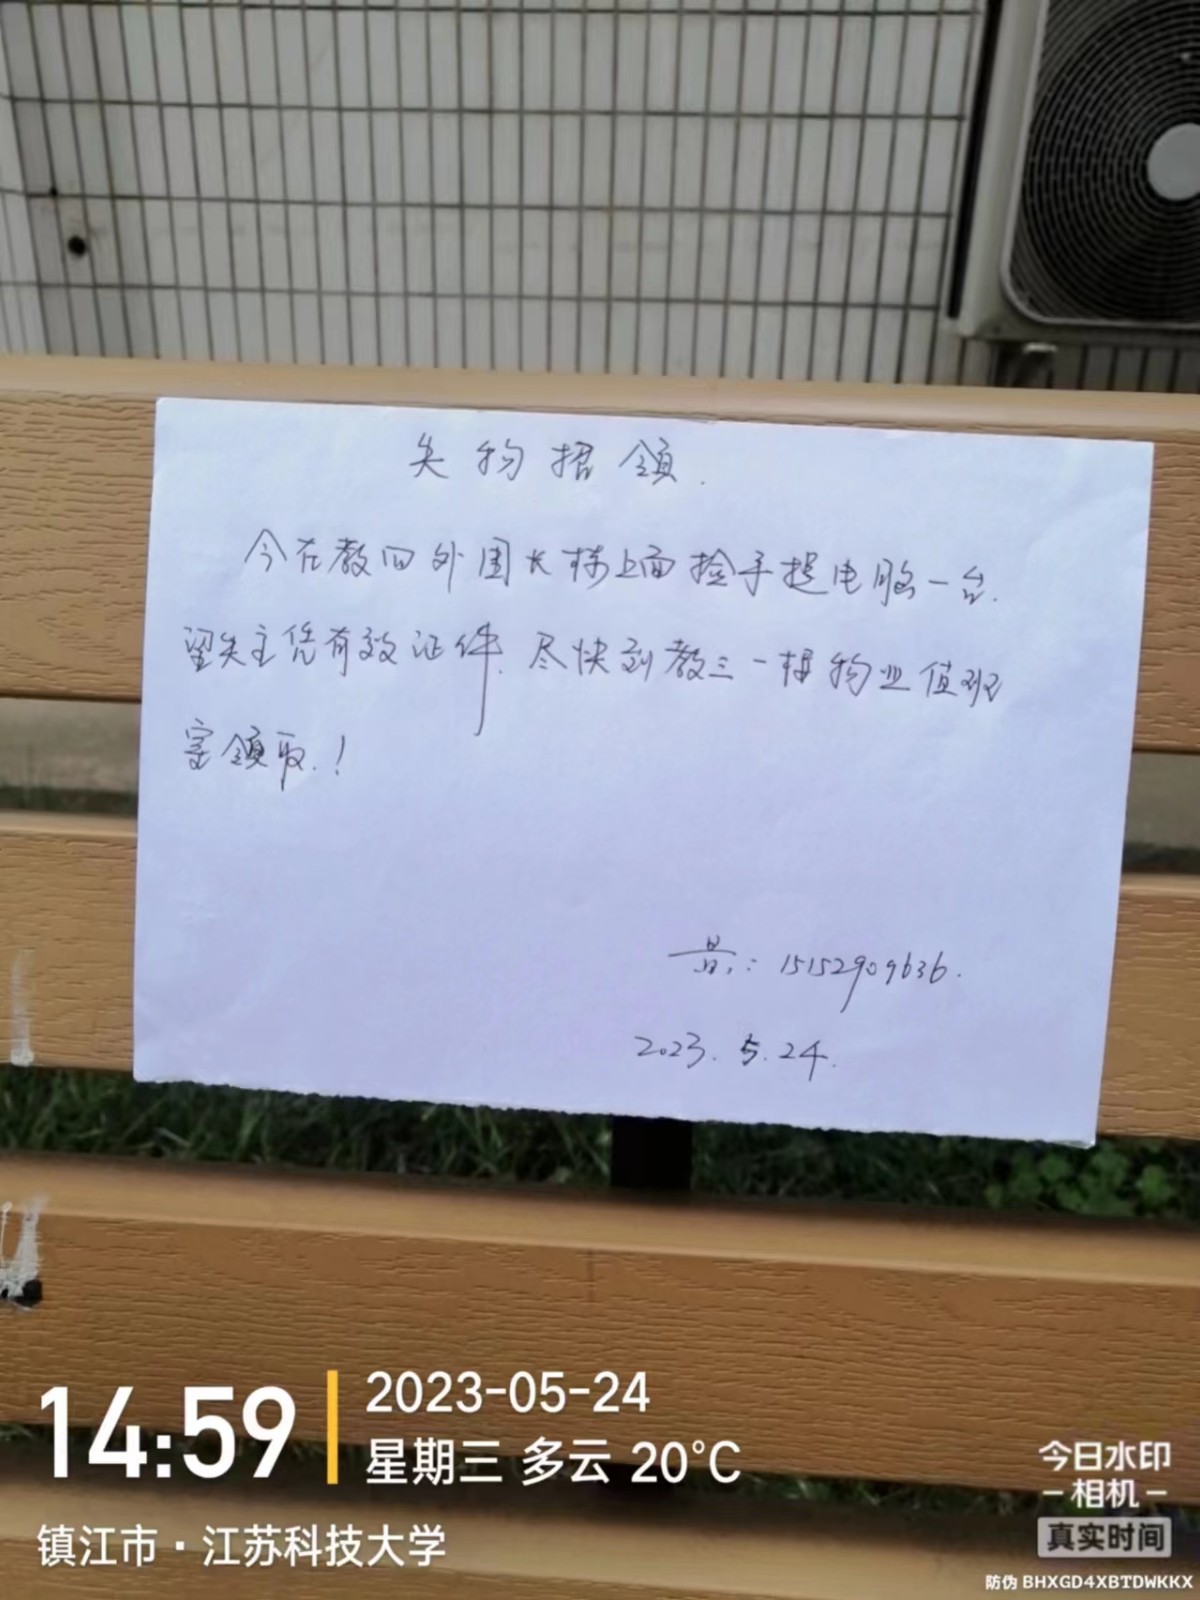 失物招领.
今在教四外围长椅上面捡手提电脑一台.
望失主凭有效证件.尽快到教三一楼物业值班
室领取.!
昙:15152909636.
2023.5.24.
14:59
2023-05-24
星期三 多云 20°C
镇江市·江苏科技大学
今日水印
-相机-
真实时间
防伪 BHXGD4XBTDWKKX